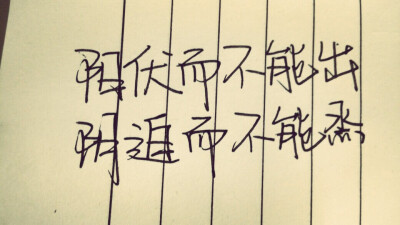 阳伏而不能出
阴迫而不能烝